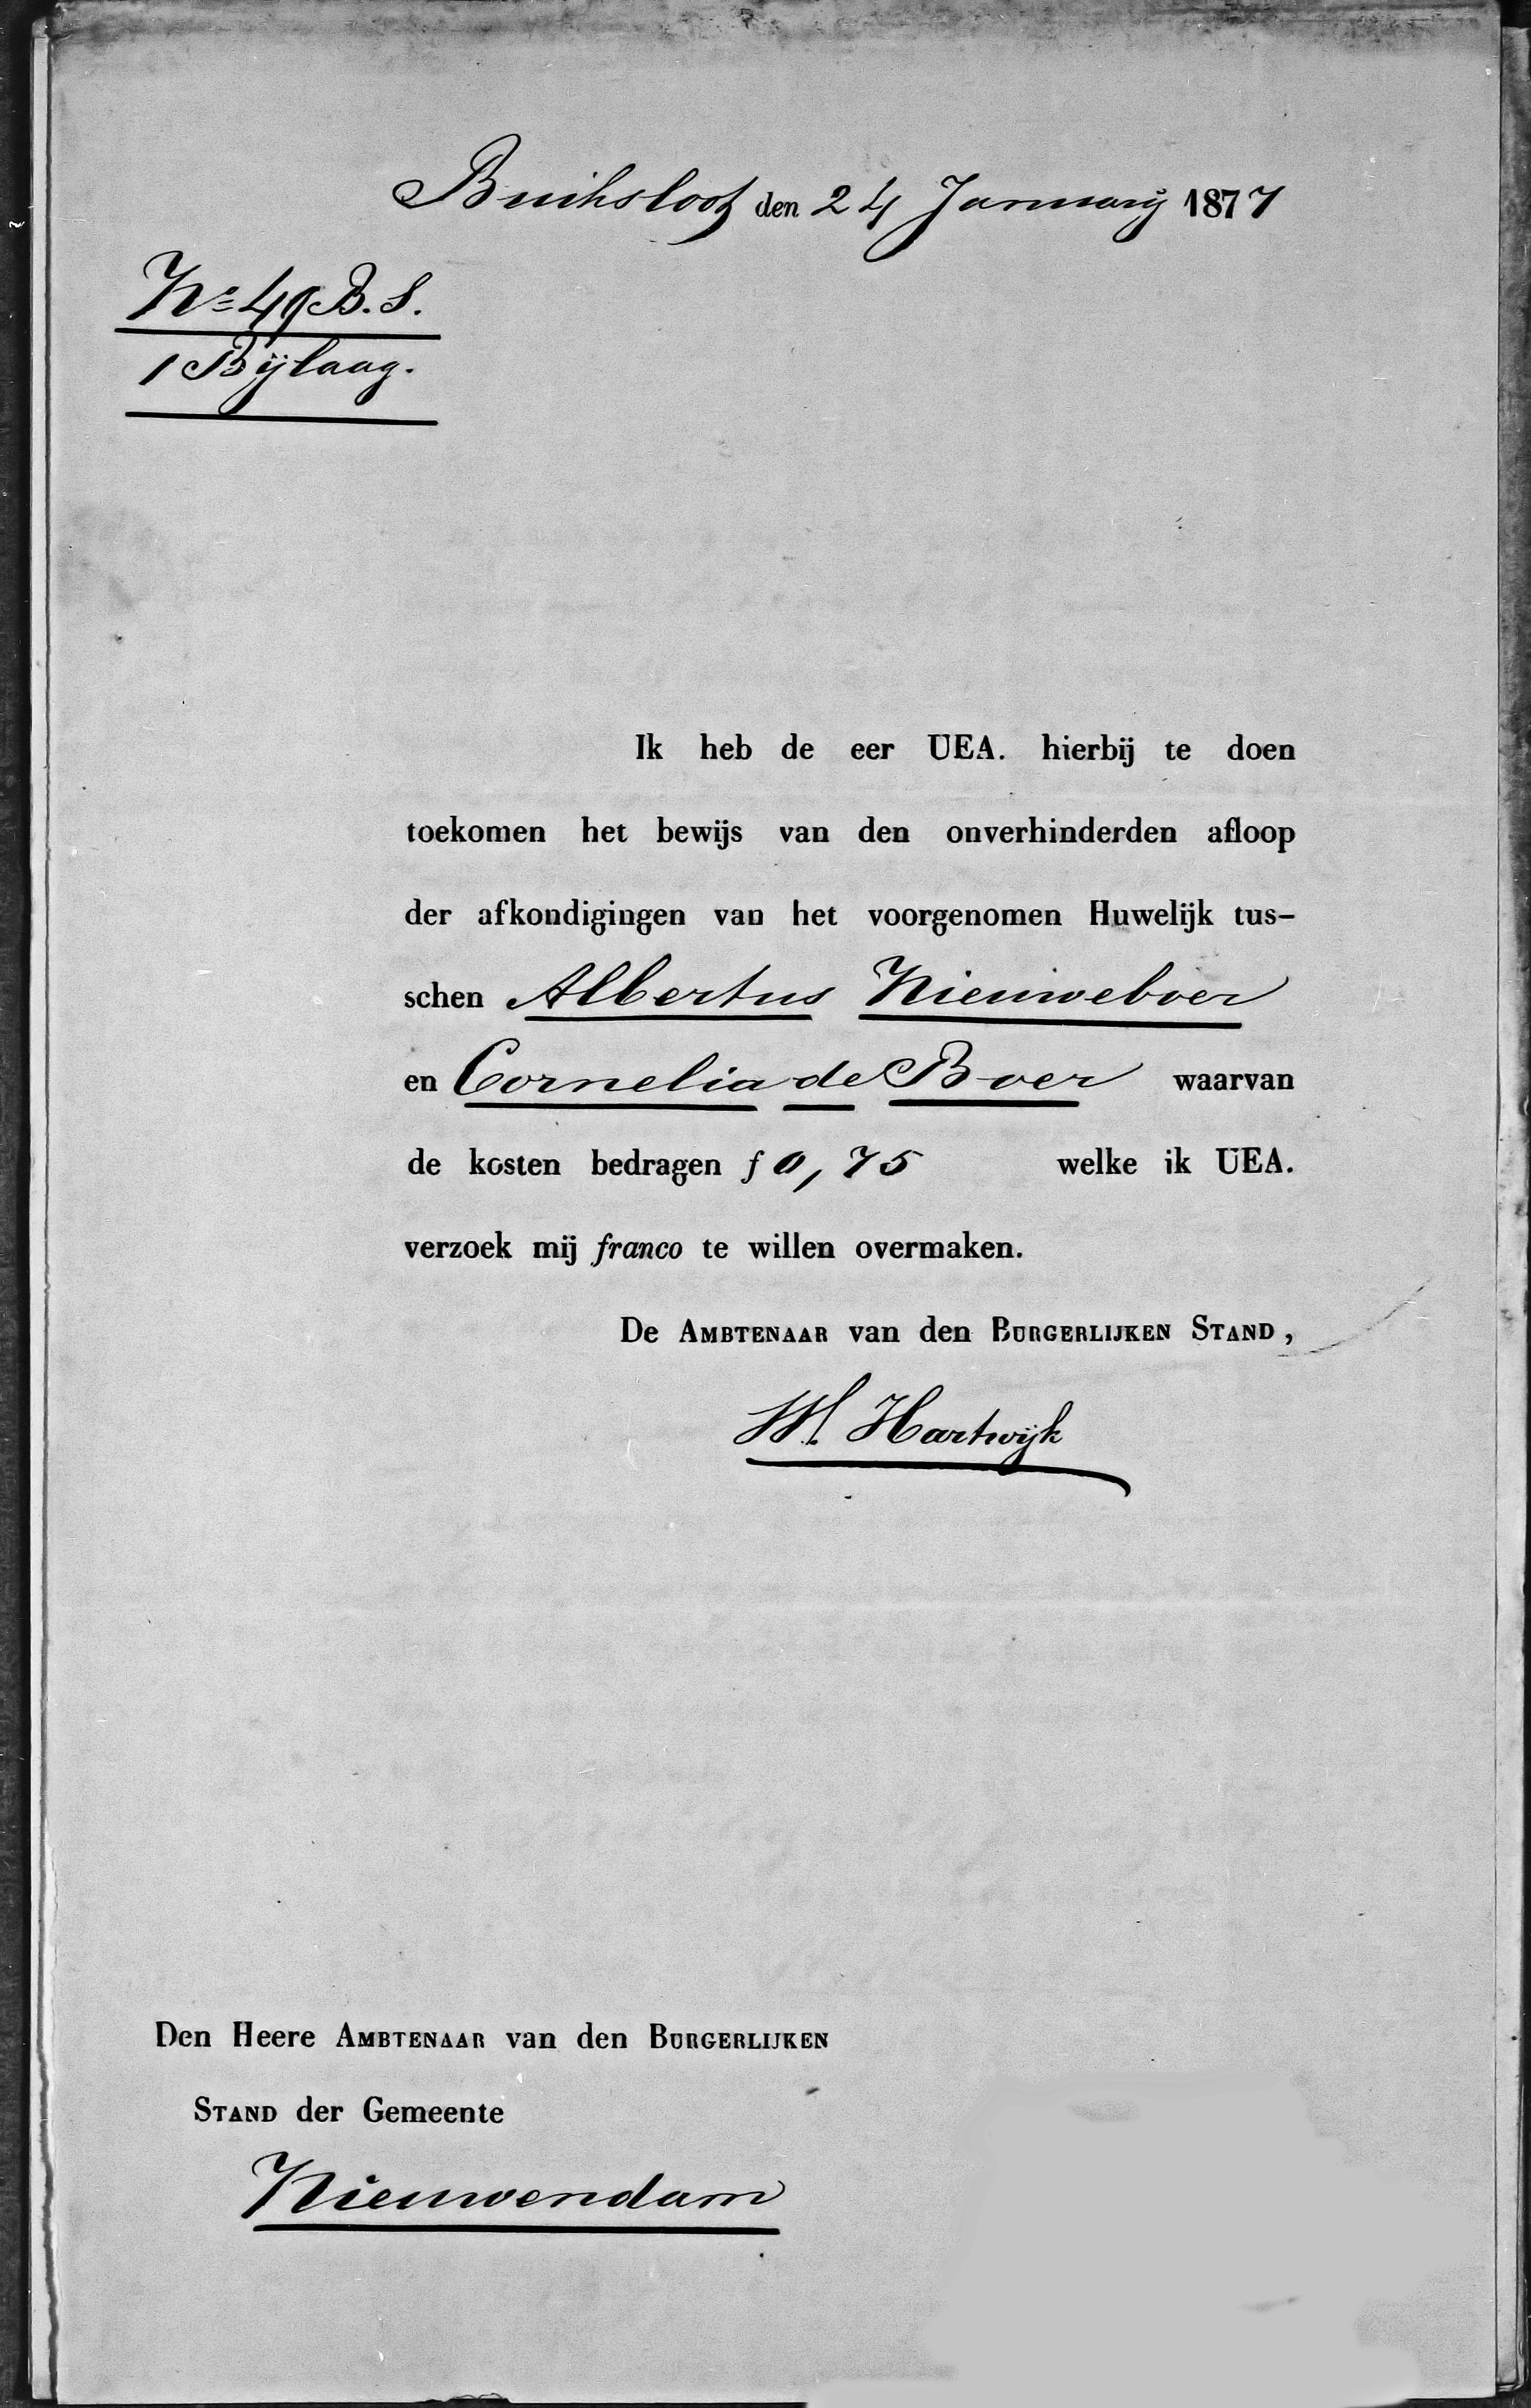 Buiksloot den 24 January 1877
No 49 B.S.
1 Bijlaag.
Ik heb de eer UEA. hierbij te doen
toekomen het bewijs van den onverhinderden afloop
der afkondigingen van het voorgenomen Huwelijk tus-
schen Albertus Nieuweboer
en Cornelia de Boer waarvan
de kosten bedragen f 0,75 welke ik UEA.
verzoek mij franco te willen overmaken.
De AMBTENAAR van den BURGERLIJKEN STAND,
W. Hartwijk
Den Heere AMBTENAAR van den BURGERLIJKEN
STAND der Gemeente
Nieuwendam